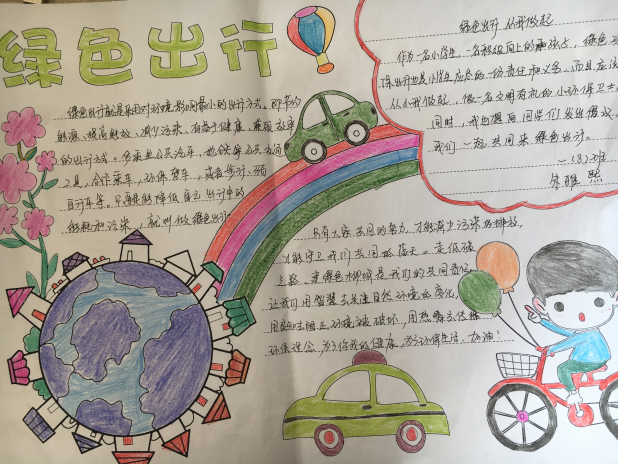 绿色出行
绿色出行就是采用对环境影响最小的出行方式。即节约
能源、提高能效、减少污染、有益于健康、兼顾效率
的出行方式。多乘坐公共汽车、地铁等公共交通
工具，合作乘车，环保驾车，或者步行、骑
自行车等。只要能降低自己出行中的
能耗和污染，就叫做绿色出行
绿色出行 从我做起
作为一名小学生，一名积极向上的
保出行也是小学生应尽的一份责任和义务，而且应该
从小我做起，做一名文明有礼的小环保卫士
同时，我也想向同学们发出倡议
我们一起共同来绿色出行。
一(8)班
朱雅熙
只有大家共同的努力，才能减少污染的排放，
才能守卫我们共同的蓝天。走低碳
之路、建绿色
是我们的共同责任
让我们用智慧去关注自然环境的变化，
用
环境被破坏，用热情去传播
环保理念，为了你我的健康，为了环保生活，加油！